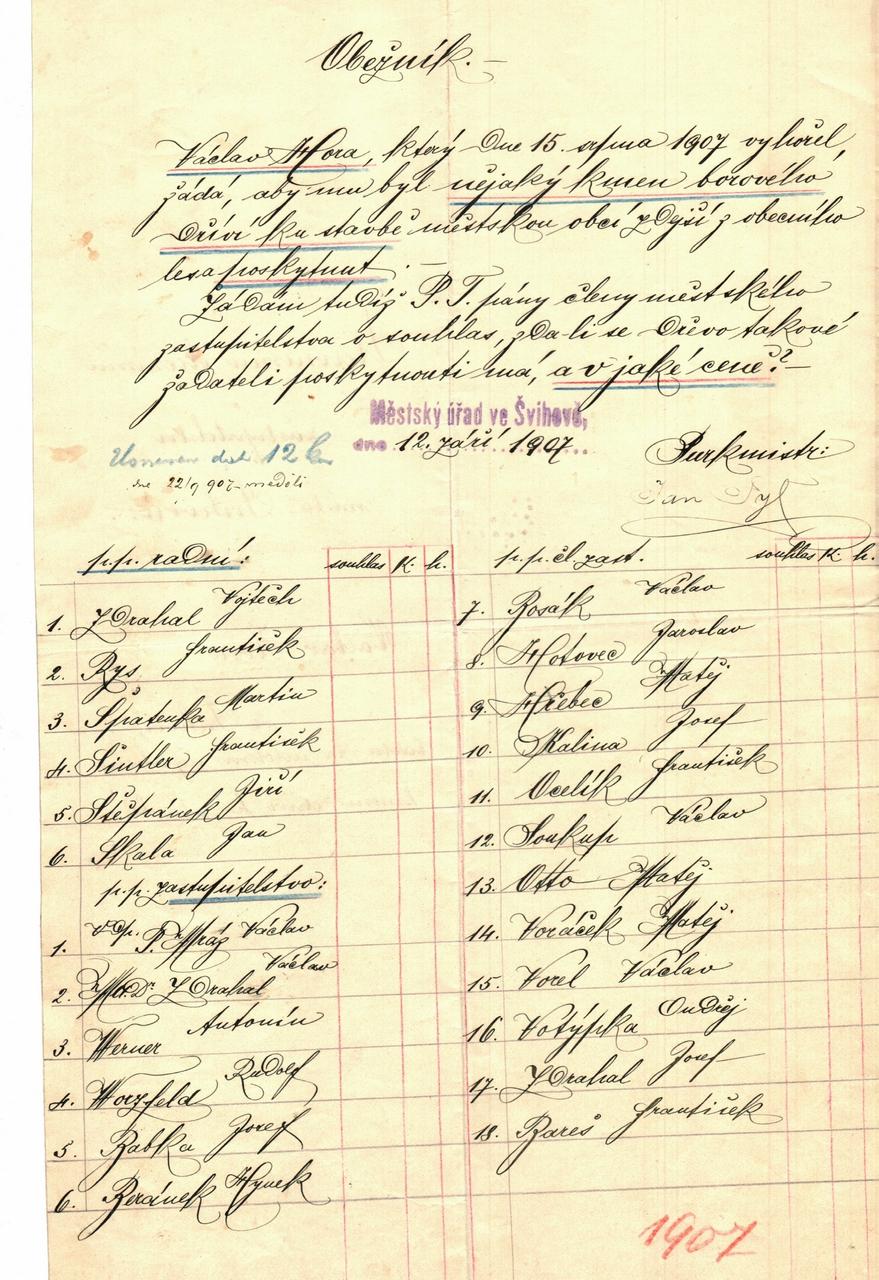 Oběžník. –
Václav Hora, který dne 15. srpna 1907 vyhořel,
žádá, aby mu byl nějaký kmen borového
dříví ku stavbě městskou obcí zdejší z obecního
lesa poskytnut. –
Žádám tudíž P. T. pány členy městského
zastupitelstva o souhlas, zda-li se dřevo takové
žadateli poskytnouti má, a v jaké ceně? –
Městský úřad ve Švihově,
dne 12. září 1907
Purkmistr:
12
dne 22/9 907 – neděli
Jan Tyl
p.p. radní: souhlas K. h.
1. Zdrahal Vojtěch
2. Rys František
3. Špatenka Martin
4. Šintler František
5. Štěpánek Jiří
6. Skala Jan
p.p. zastupitelstvo:
1. vdp. P. Mráz Václav
2. MUDr. Zdrahal Václav
3. Werner Antonín
4. Worzfeld Rudolf
5. Babka Josef
6. Beránek Hynek
p.p. čl. zast. souhlas K h.
7. Bosák Václav
8. Hotovec Jaroslav
9. Hřebec Matěj
10. Kalina Josef
11. Ocelík František
12. Soukup Václav
13. Otto Matěj
14. Voráček Matěj
15. Vorel Václav
16. Votýpka Ondřej
17. Zdrahal Josef
18. Bareš František
1907